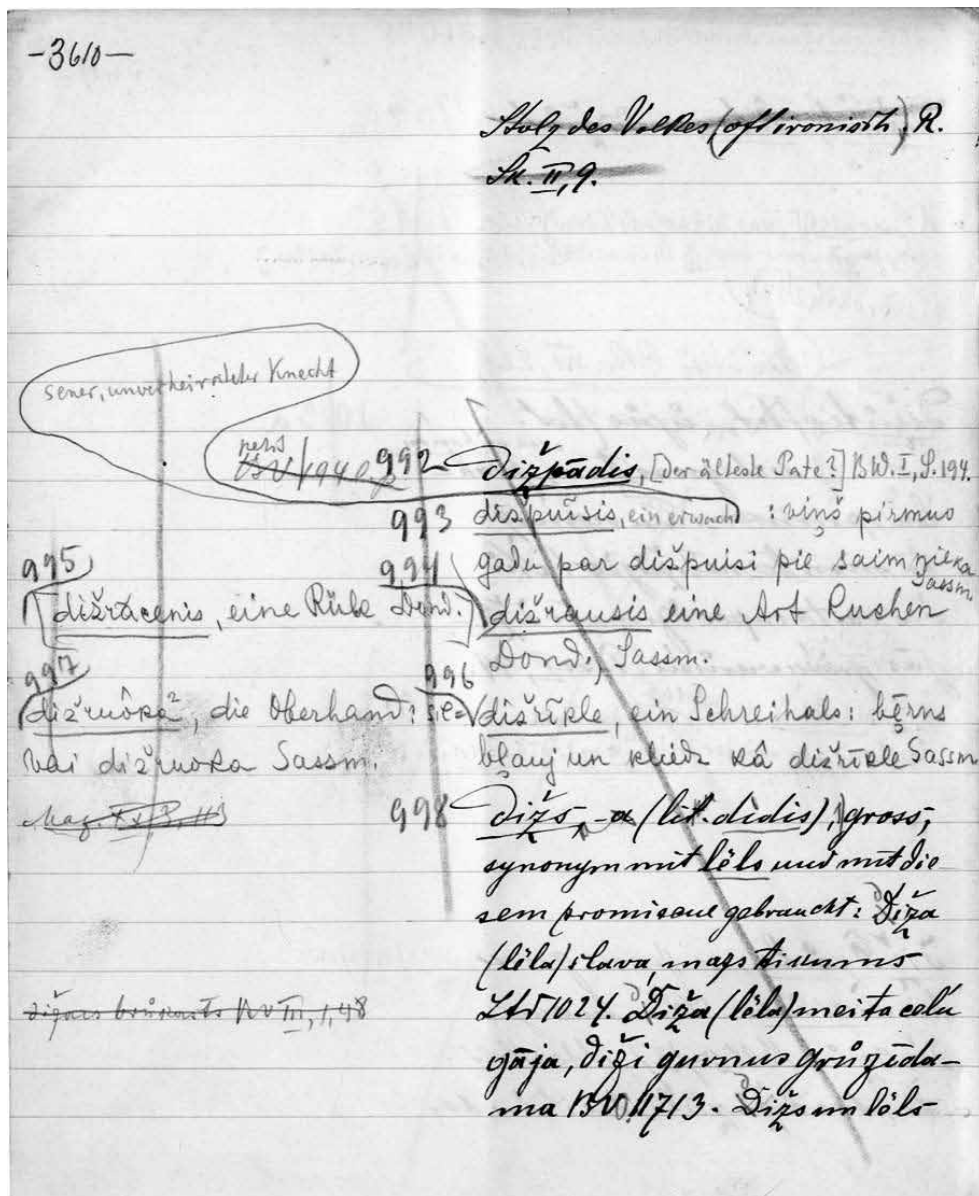 -3610-
Stolz des Volkes (oft ironisch) R.
Sk. II, 9.
sener, unverheirateter Knecht
1940, 992 dižpādis, [der älteste Pate?] BW. I, S. 194.
993 dižpuisis, ein erwach : viņš pirmuo
gadu par dižpuisi pie saimnieka Sassm.
995
dižrācenis, eine Rübe Dond.
994
dižrausis eine Art Kuchen
Dond., Sassm.
997
dižruôka², die Oberhand:
vai dižruoka Sassm.
996
dižrīkle, ein Schreihals: bērns
bļauj un kliedz kâ dižrīkle Sassm
Mag. XX, 3, 113
998 dižs, -a (lit. didis), gross,
synonym mit lēls und mit die
sem promiscue gebraucht: Diža
(lēla) slava, mazs tikums
Ltd 1024. Diža (lēla) meita ceļu
dižens brūkasts BW III, 1, 48
gāja, diži gurnus grůzīda-
ma BW. 11713. Dižs un lēls